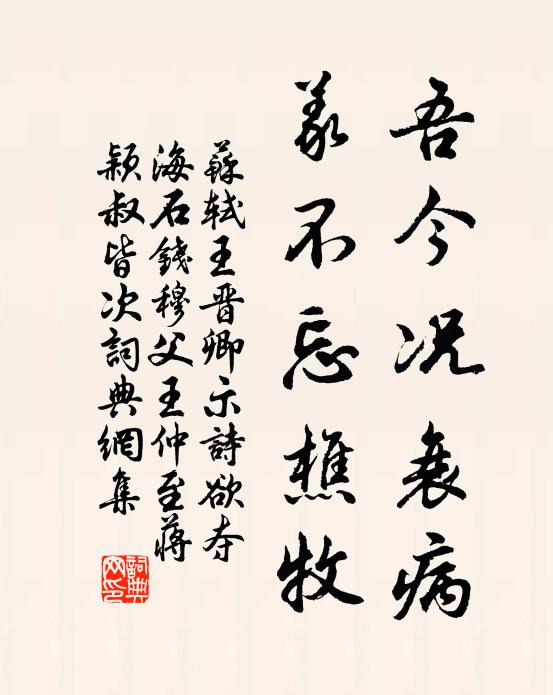 吾今况衰病
義不忘樵牧
蘇軾王晋卿示詩欲夺
海石錢穆父王仲至蔣
穎叔皆次詞典網集
詞典
网印